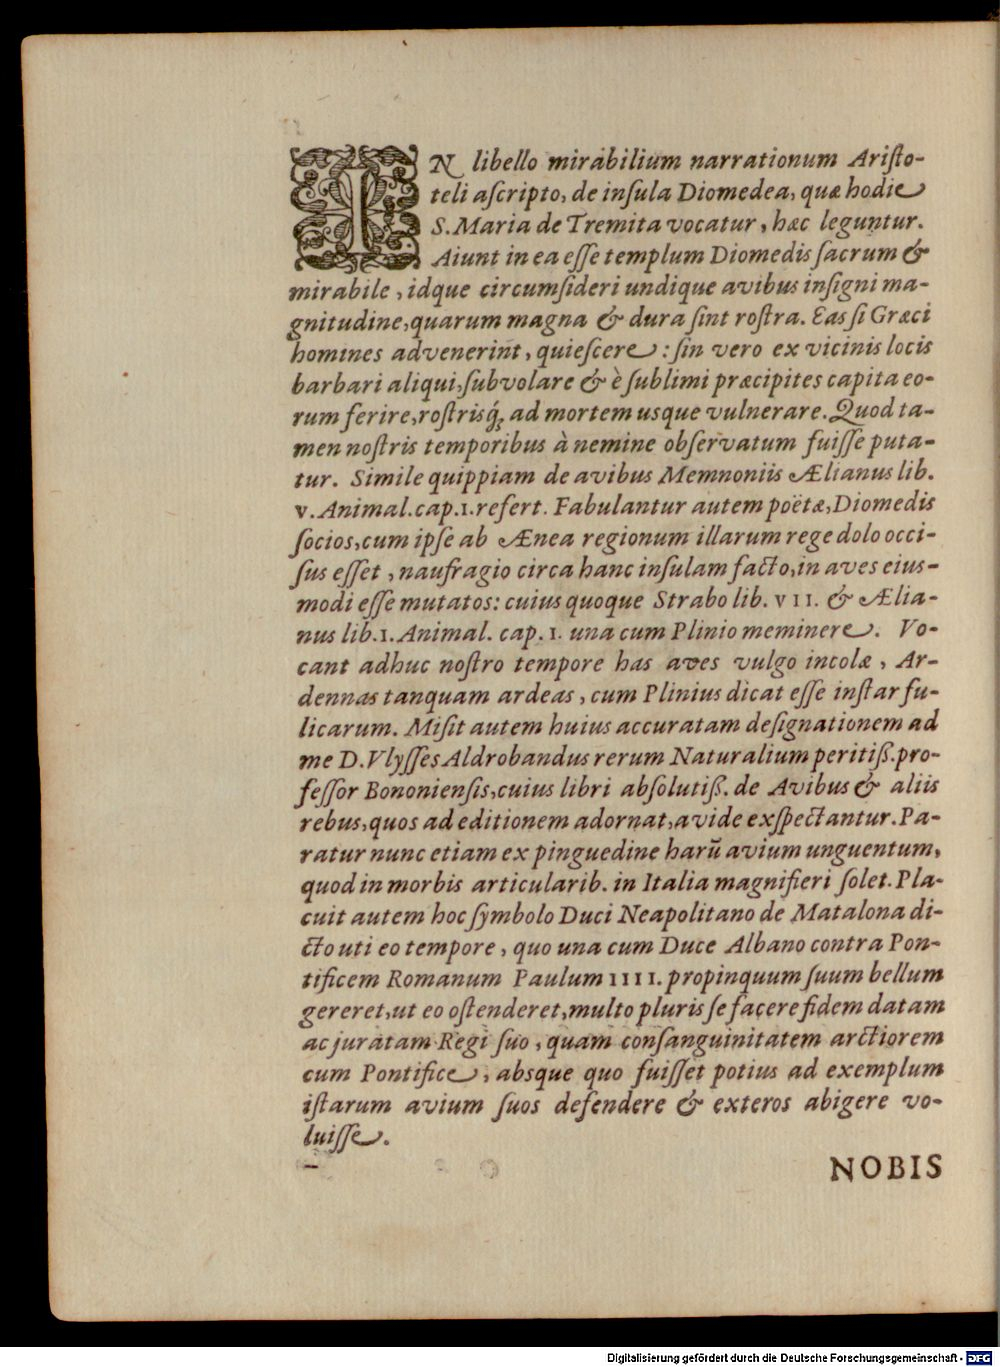 IN libello mirabilium narrationum Aristo-
teli ascripto, de insula Diomedea, quæ hodie
S. Maria de Tremita vocatur, hæc leguntur.
Aiunt in ea esse templum Diomedis sacrum &
mirabile, idque circumsideri undique avibus insigni ma-
gnitudine, quarum magna & dura sint rostra. Eas si Græci
homines advenerint, quiescere: sin vero ex vicinis locis
barbari aliqui, subvolare & è sublimi præcipites capita eo-
rum ferire, rostrisq́; ad mortem usque vulnerare. Quod ta-
men nostris temporibus à nemine observatum fuisse puta-
tur. Simile quippiam de avibus Memnoniis Ælianus lib.
v. Animal. cap. 1. refert. Fabulantur autem poëtæ, Diomedis
socios, cum ipse ab Ænea regionum illarum rege dolo occi-
sus esset, naufragio circa hanc insulam facto, in aves eius-
modi esse mutatos: cuius quoque Strabo lib. VII. & Ælia-
nus lib. 1. Animal. cap. 1. una cum Plinio meminere. Vo-
cant adhuc nostro tempore has aves vulgo incolæ, Ar-
dennas tanquam ardeas, cum Plinius dicat esse instar fu-
licarum. Misit autem huius accuratam designationem ad
me D. Vlysses Aldrobandus rerum Naturalium peritiß. pro-
fessor Bononiensis, cuius libri absolutiß. de Avibus & aliis
rebus, quos ad editionem adornat, avide exspectantur. Pa-
ratur nunc etiam ex pinguedine harũ avium unguentum,
quod in morbis articularib. in Italia magnifieri solet. Pla-
cuit autem hoc symbolo Duci Neapolitano de Matalona di-
cto uti eo tempore, quo una cum Duce Albano contra Pon-
tificem Romanum Paulum IIII. propinquum suum bellum
gereret, ut eo ostenderet, multo pluris se facere fidem datam
ac juratam Regi suo, quam consanguinitatem arctiorem
cum Pontifice, absque quo fuisset potius ad exemplum
istarum avium suos defendere & exteros abigere vo-
luisse.
NOBIS
Digitalisierung gefördert durch die Deutsche Forschungsgemeinschaft - DFG